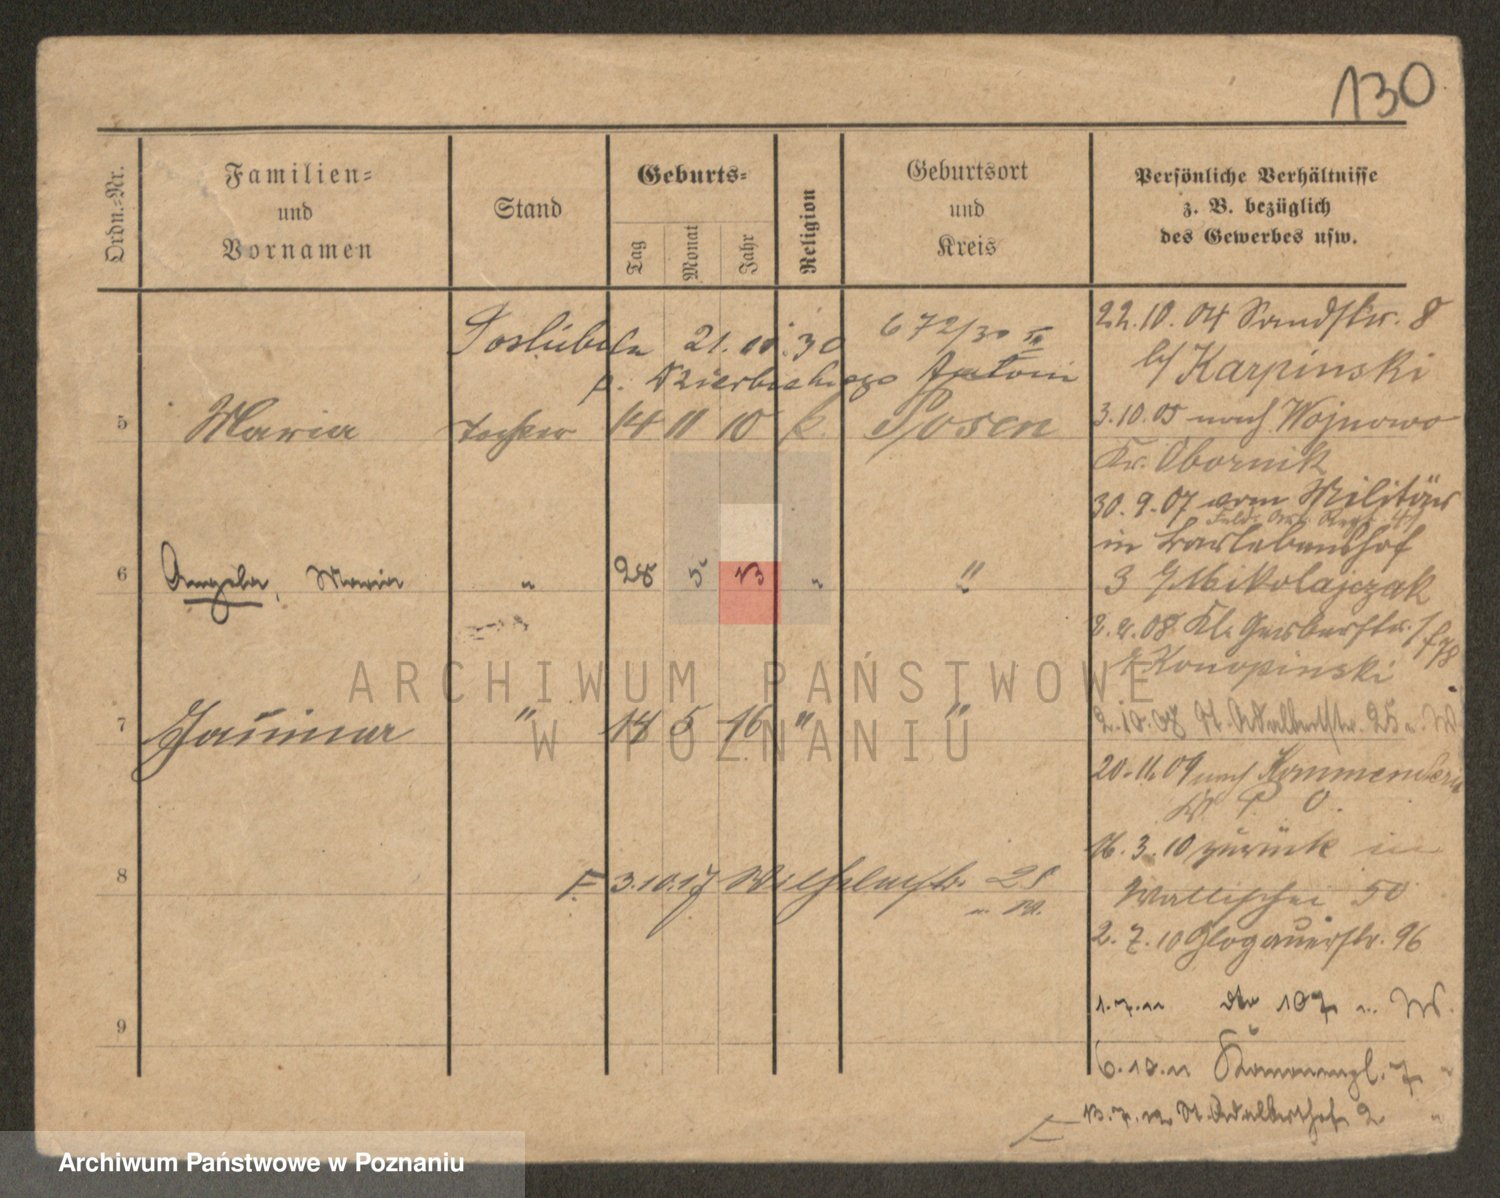 130
Ordn.-Nr.
Familien-
und
Vornamen
Stand
Geburts-
Tag
Monat
Jahr
Religion
Geburtsort
und
Kreis
Persönliche Verhältnisse
z. B. bezüglich
des Gewerbes usw.
21. 10. 30 672/30
p. Antoni
5 Maria Tochter 14 11 10 k. Posen
6 Angela, Maria " 28 5 13 " "
7 14 5 16 " "
8 F. 3.10.17 Wilhelmstr. 25
9
22.10.04 Sandstr. 8
b/ Karpinski
3.10.05 nach Wojnowo
Kr. Obornik
30.9.07 vom Militär
Feld. Art. Regt.
in Bartlebenshof
3 b/ Mikolajczak
2.2.08 Kl. Gerberstr.
b/ Konopinski
2.10.08 St. Adalbertstr. 25 u. W
20.11.09 nach Kommenderie
P. O.
16.3.10 zurück in
Wallischei 50
2.7.10 Glogauerstr. 96
1.7.11 dto 107 u. W.
6.10.11 7 "
13.7.12 St. Adalberthof 2 "
ARCHIWUM PAŃSTWOWE
W POZNANIU
Archiwum Państwowe w Poznaniu